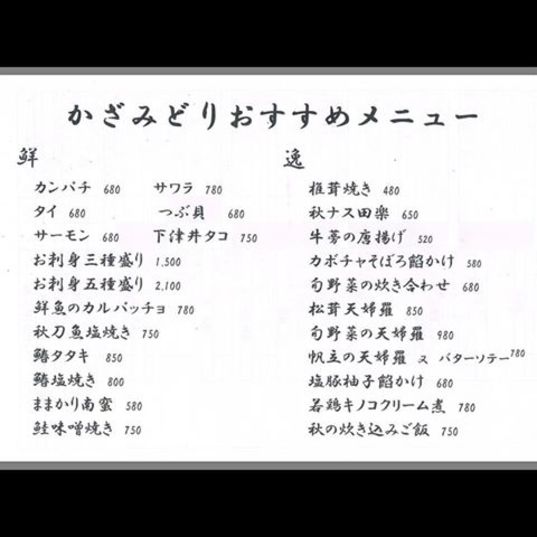 かざみどりおすすめメニュー
鮮
カンパチ 680 サワラ 780
タイ 680 つぶ貝 680
サーモン 680 下津井タコ 750
お刺身三種盛り 1,500
お刺身五種盛り 2,100
鮮魚のカルパッチョ 780
秋刀魚塩焼き 750
鰆タタキ 850
鰆塩焼き 800
ままかり南蛮 580
鮭味噌焼き 750
逸
椎茸焼き 480
秋ナス田楽 650
牛蒡の唐揚げ 520
カボチャそぼろ餡かけ 580
旬野菜の炊き合わせ 680
松茸天婦羅 850
旬野菜の天婦羅 980
帆立の天婦羅 又 バターソテー 780
塩豚柚子餡かけ 680
若鶏キノコクリーム煮 780
秋の炊き込みご飯 750